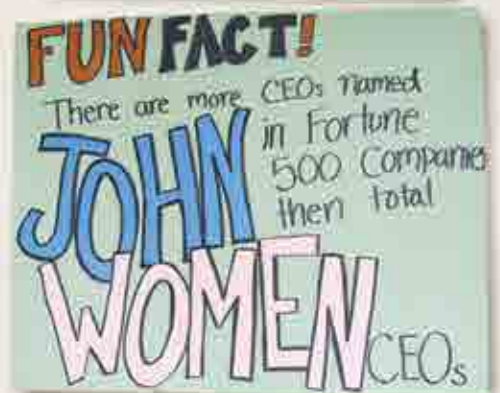 FUN FACT!
There are more CEOs named
JOHN in Fortune
500 Companies
then total
WOMEN CEOs